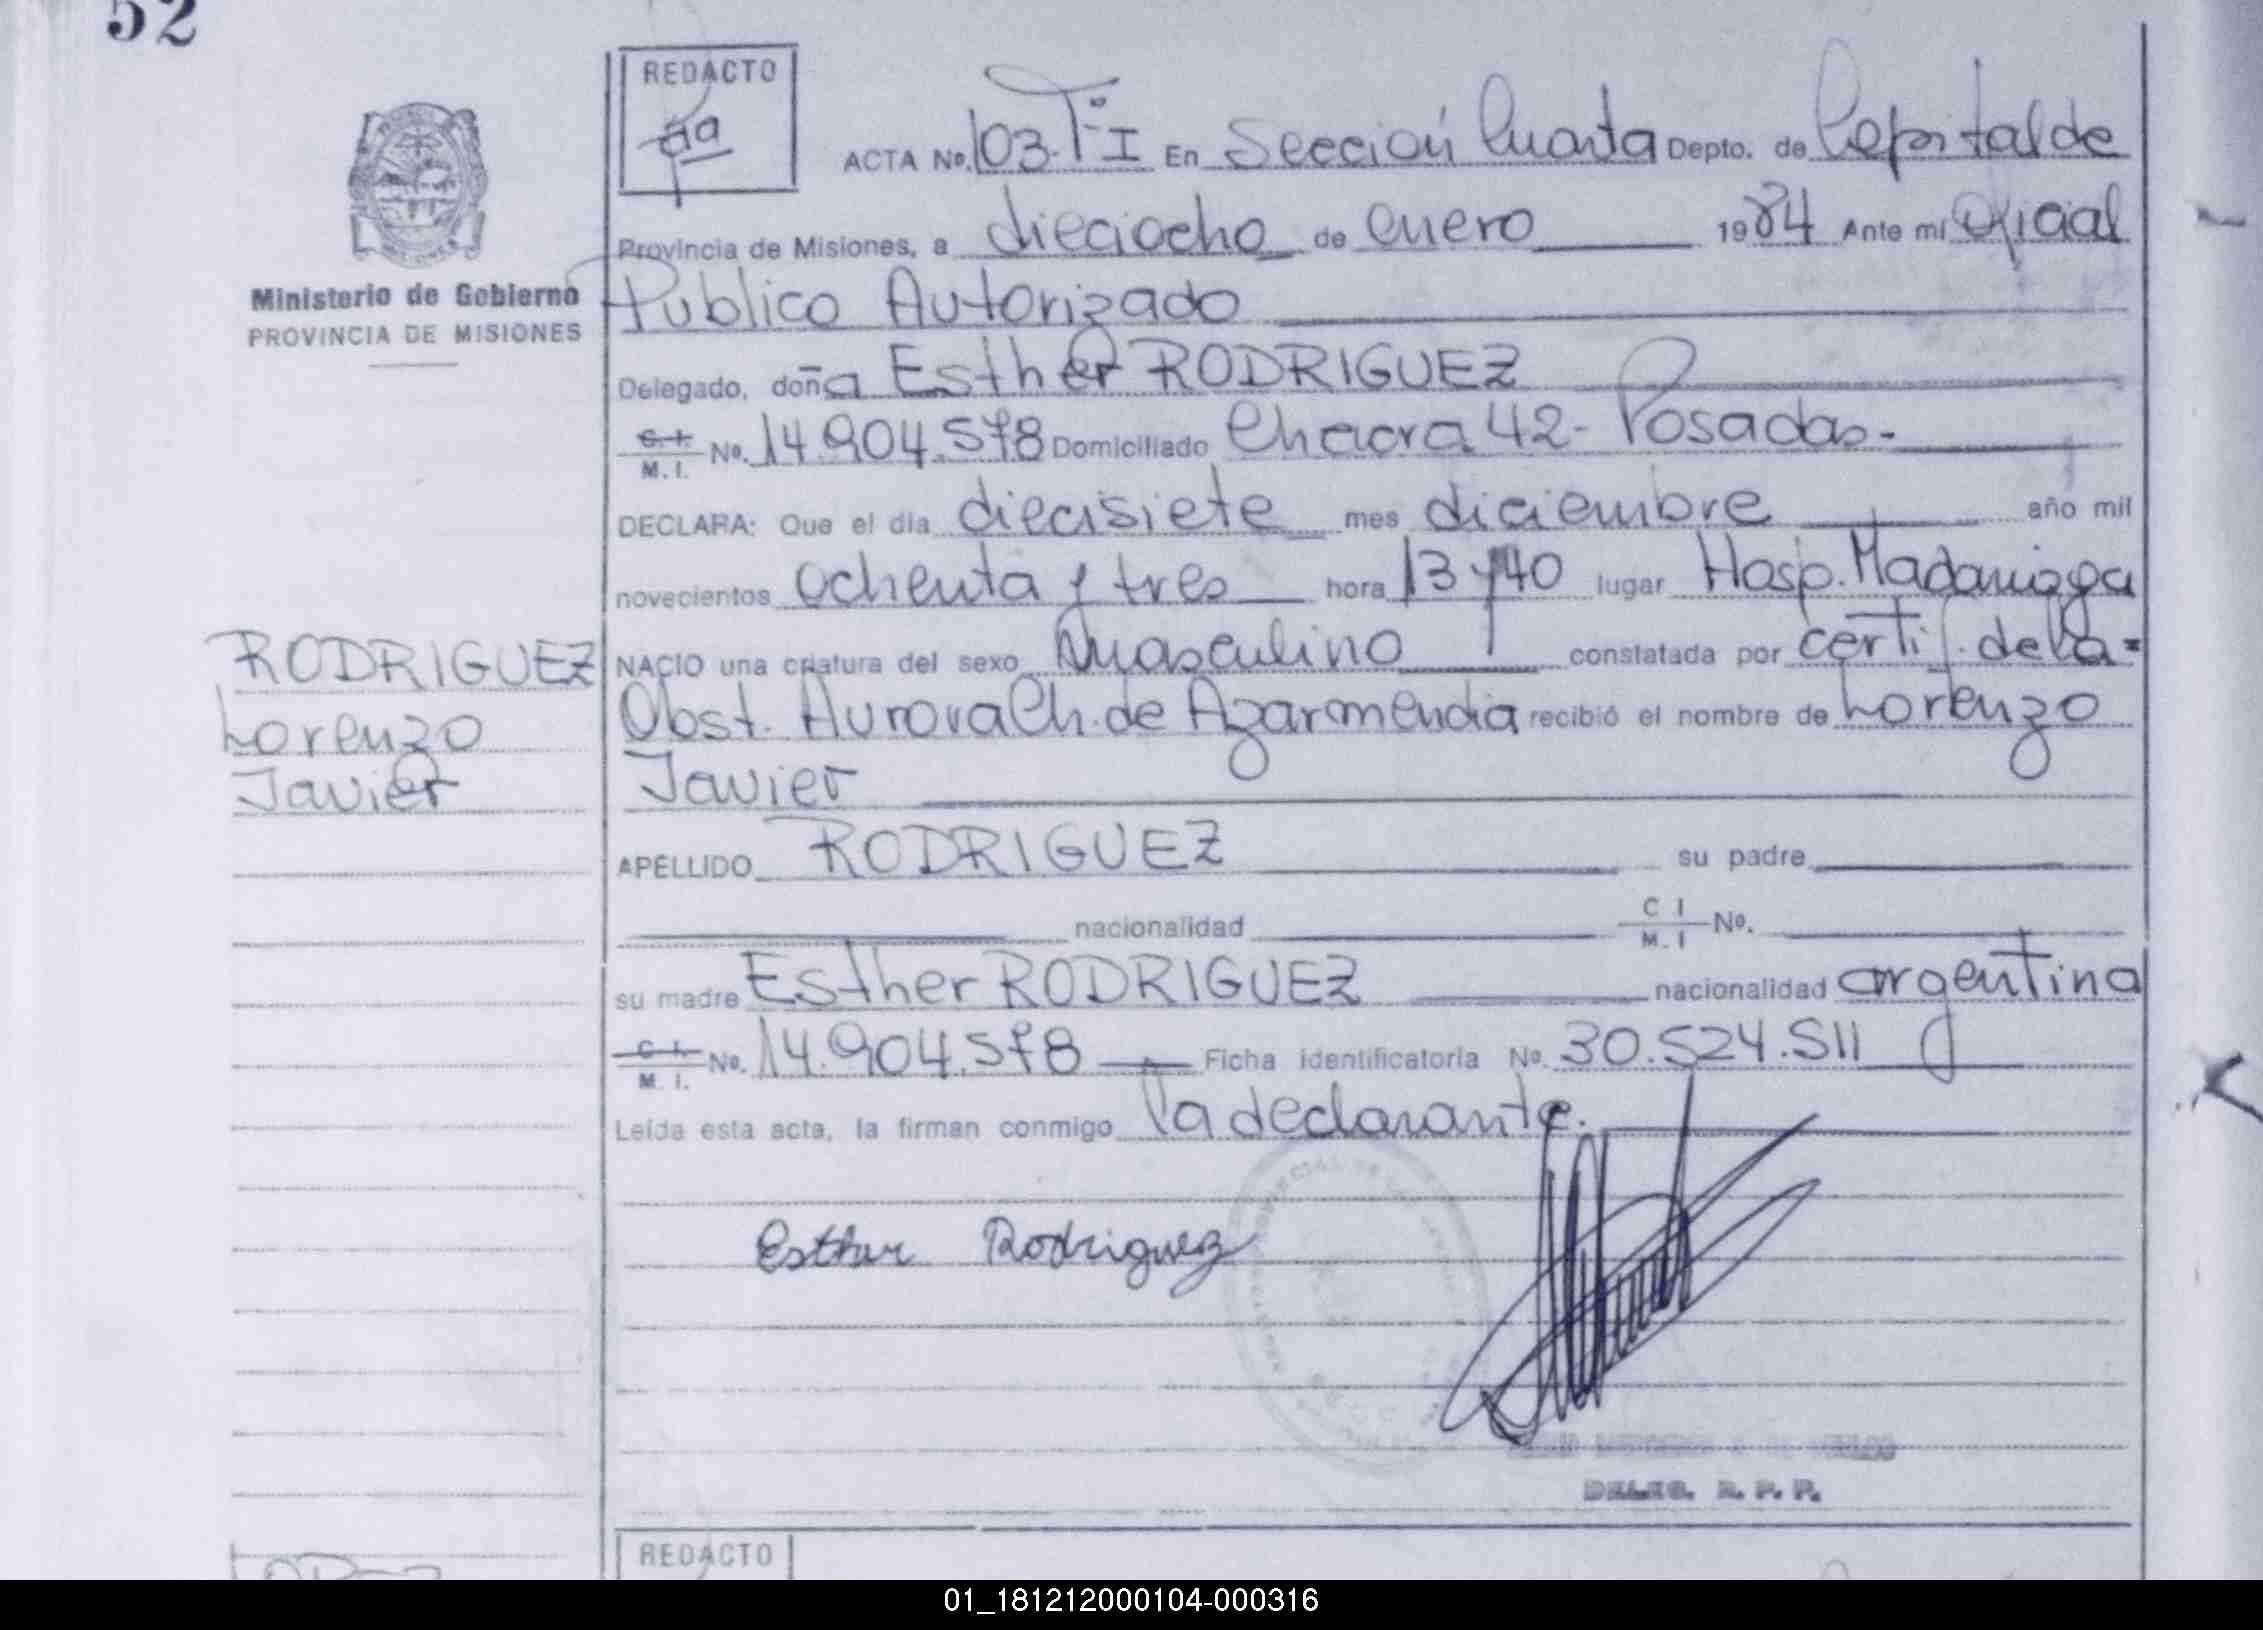 52
REDACTO
ACTA No. 103. T- I En Sección Cuarta Depto. de Capital de
Provincia de Misiones, a dieciocho de enero 1984 Ante mi Oficial
Ministerio de Gobierno
PROVINCIA DE MISIONES
Publico Autorizado
Delegado, doña Esther RODRIGUEZ
C.I. M.I. No. 14.904.578 Domiciliado Chacra 42- Posadas-
DECLARA: Que el día diecisiete mes diciembre año mil
novecientos ochenta y tres hora 13 y 40 lugar Hosp. Madariaga
RODRIGUEZ
Lorenzo
Javier
NACIO una criatura del sexo masculino constatada por certif. de la=
Obst. Aurora Ch. de Azarmendia recibió el nombre de Lorenzo
Javier
APELLIDO RODRIGUEZ su padre
nacionalidad C I M. I No.
su madre Esther RODRIGUEZ nacionalidad argentina
C I. M. I. No. 14.904.578 Ficha identificatoria No. 30.524.511
Leída esta acta, la firman conmigo la declarante.
Esther Rodriguez
DELEG. R. P. P.
REDACTO
01_181212000104-000316